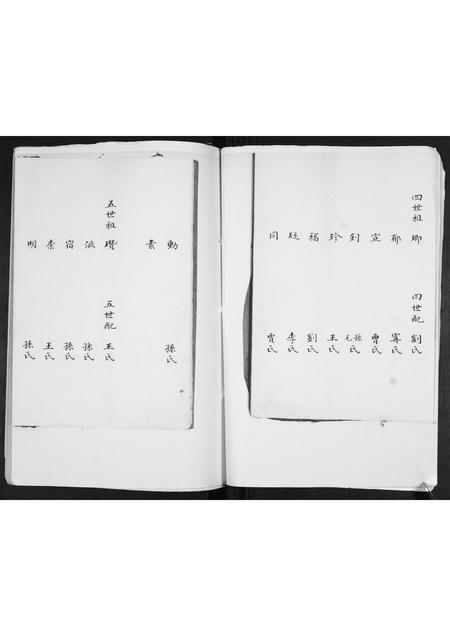 四世祖 瑯 四世配 劉氏
郁 寗氏
宣 曹氏
釗 孫氏 毛氏
珍 王氏
福 劉氏
廷 李氏
同 賈氏
勳 孫氏
素
五世祖 瓚 五世配 王氏
滋 孫氏
宿 孫氏
柰 王氏
明 孫氏